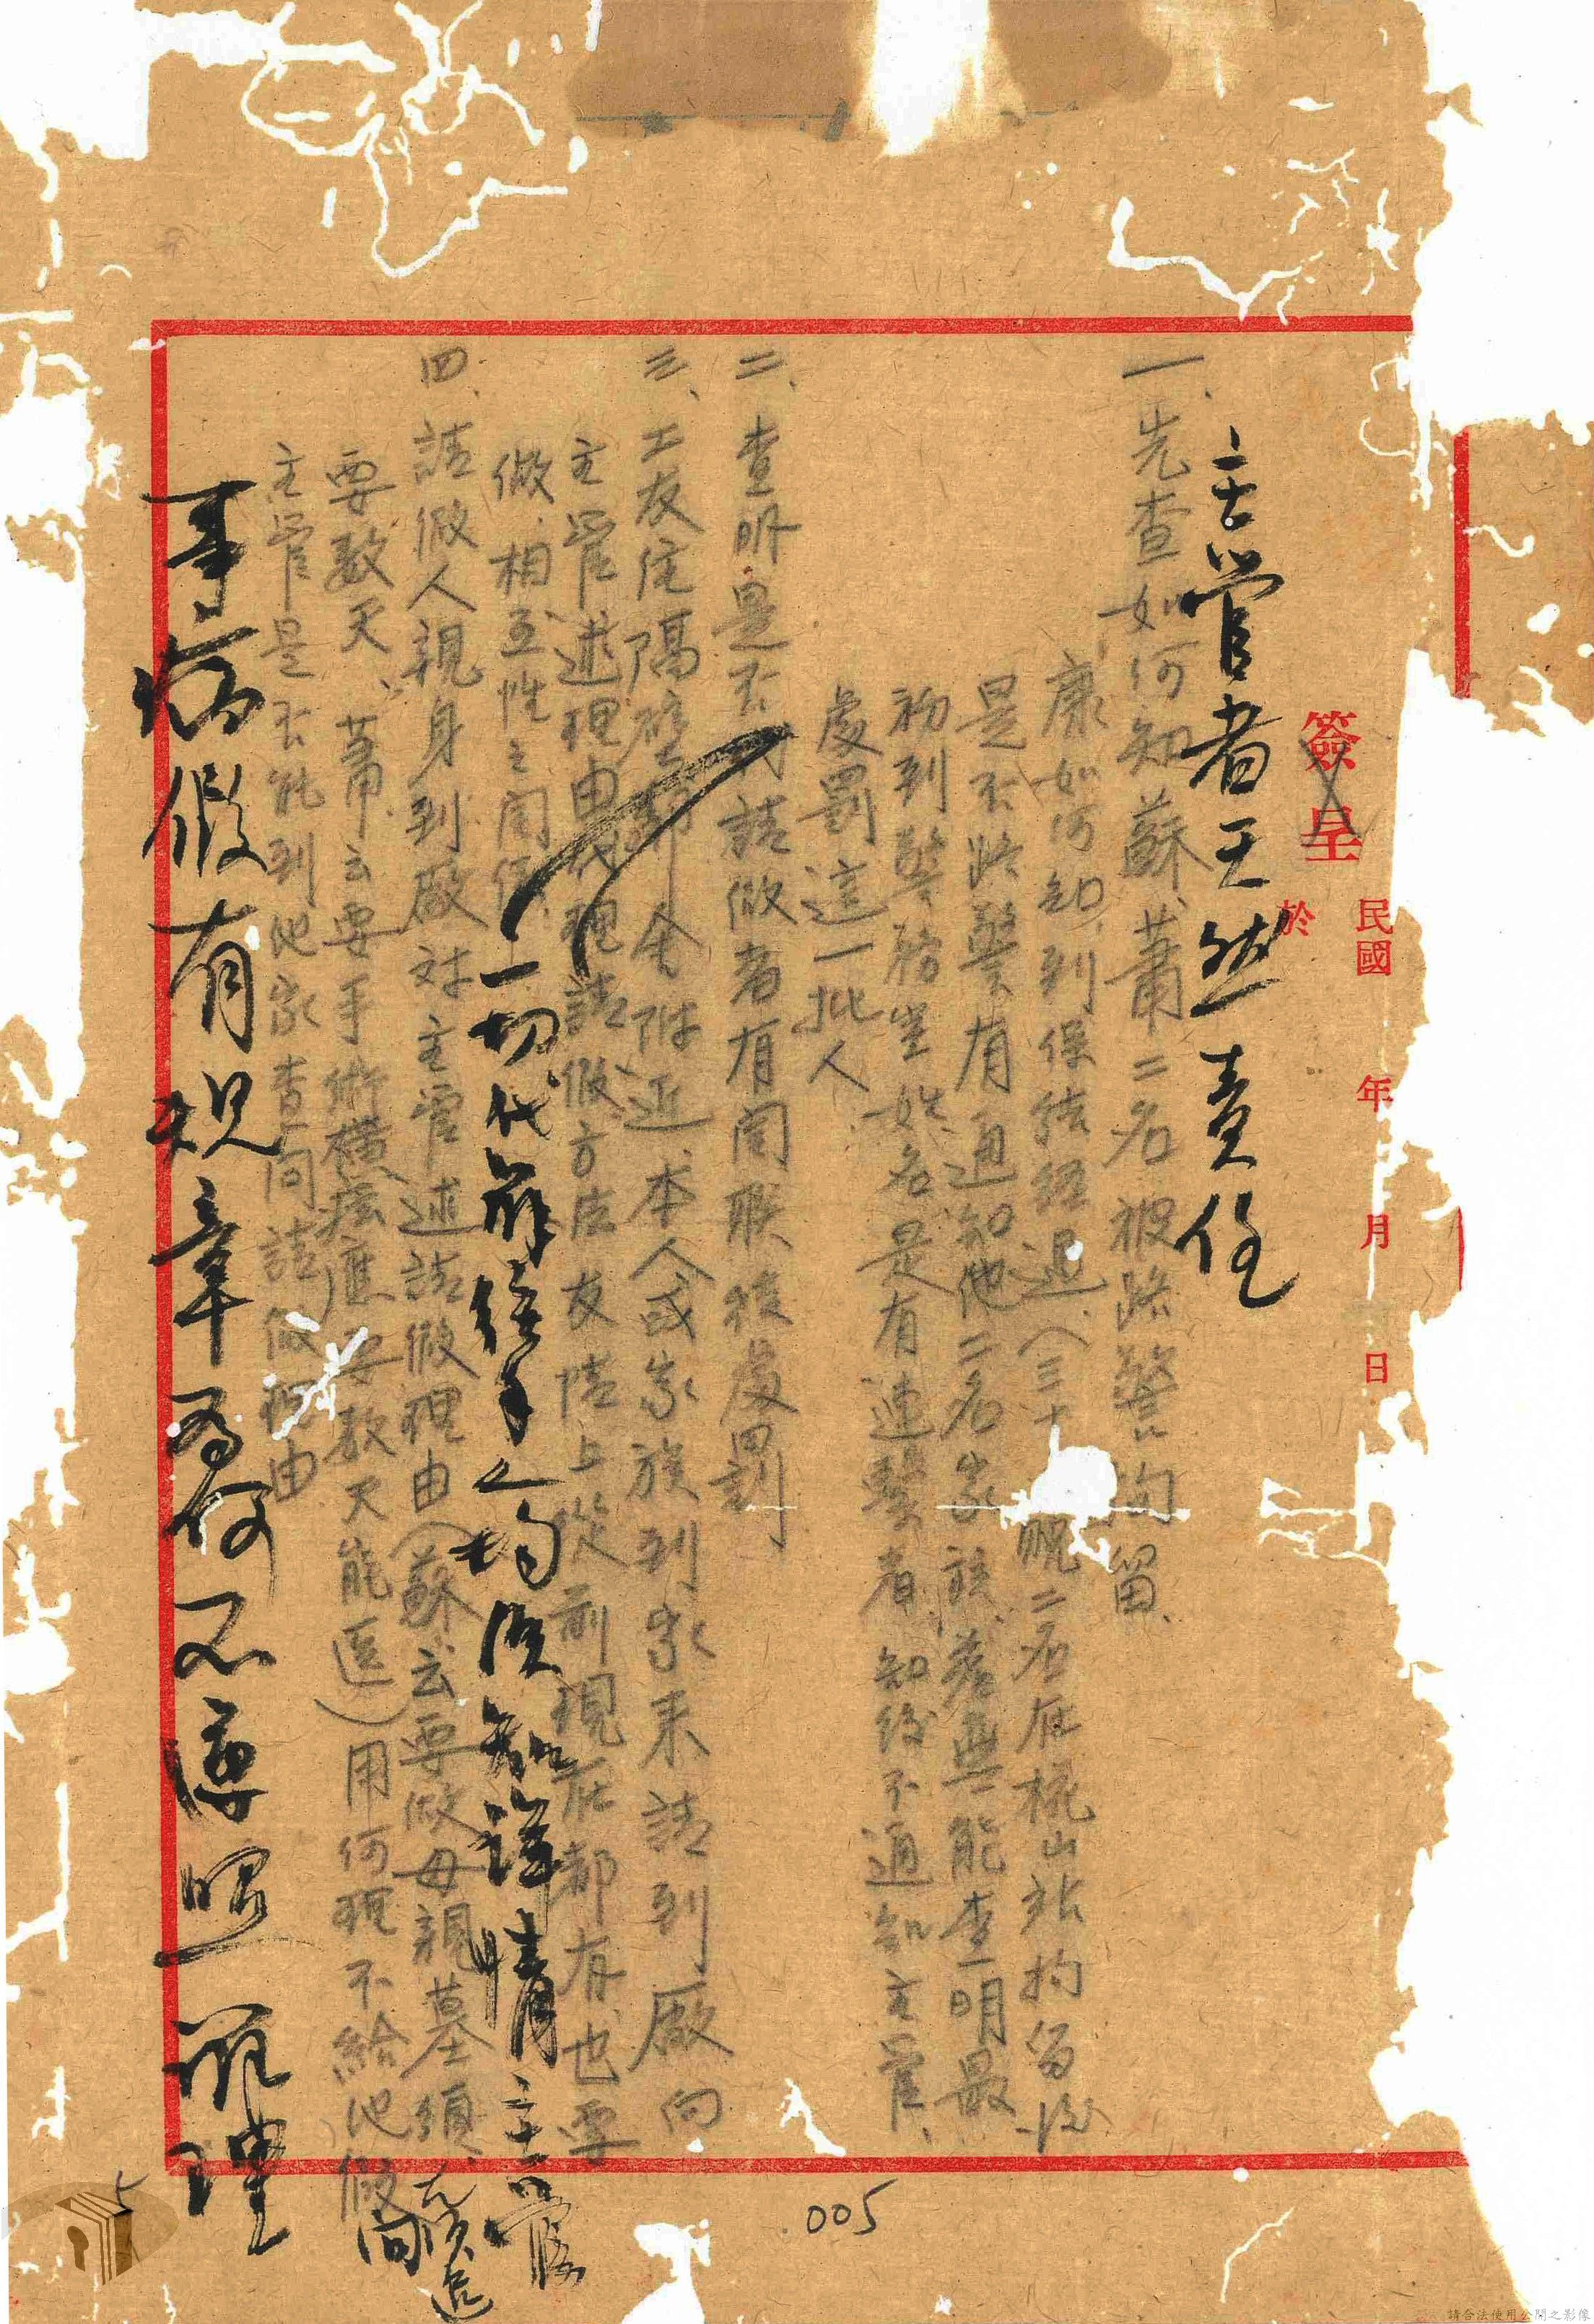 簽呈
民國 年 月 日
於
主管者天然責任
一、先查如何知蘇、蕭二名被路警拘留、
康如何知、到保結經過、(三十 帆二名在桃山站拘留後
是否路警有通知他二名家族、若無能查明最
初到警務室姓名是有連繫者、知後不通知主管、
處罰這一批人
二、查明是否 請假者有関聯後處罰
三、工友住隔壁 舍附近、本人或家族到家来請到廠向
主管述理由代理請假方法友情上從前現在都有、也要
做、相互性之関係、
一切代 經手人均須知詳情主管
四、請假人親身到廠対主管述請假理由(蘇云要做母親墓須
要数天、蕭云要手術橫痃應要数天能医)用何理不給他假
向
主管是否能到他家查问請假理由
事病假有規章為何不遵照辦理
.005
5
請合法使用公開之影像